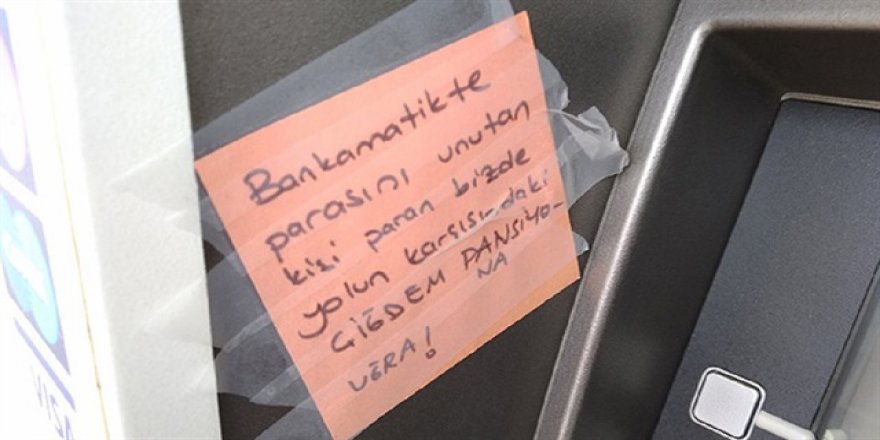 Bankamatikte
parasını unutan
kişi paran bizde
yolun karşısı_daki
ÇİĞDEM PANSİYO-
NA
UĞRA!
VISA